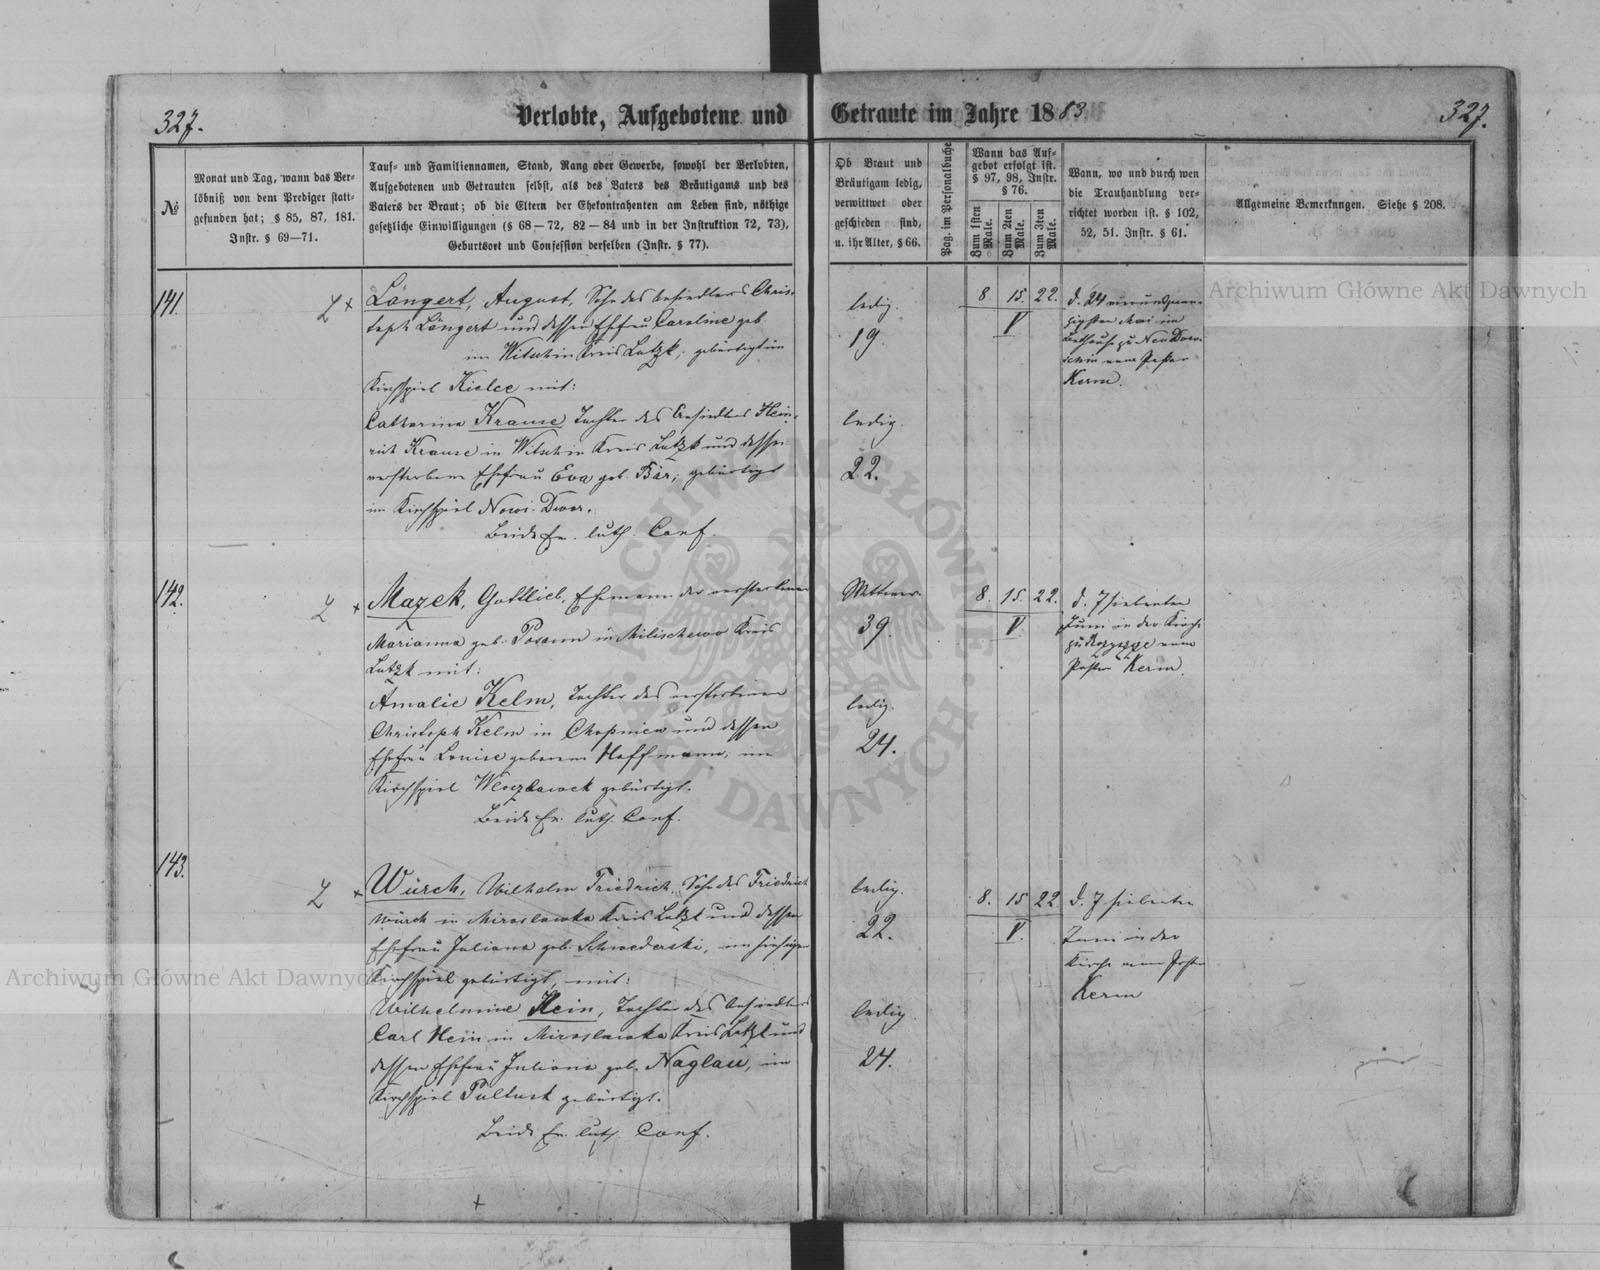 327.
Verlobte, Aufgebotene und Getraute im Jahre 1883.
327.
№
Monat und Tag, wann das Ver-
löbniß von dem Prediger statt-
gefunden hat; § 85, 87, 181.
Instr. § 69—71.
Tauf- und Familiennamen, Stand, Rang oder Gewerbe, sowohl der Verlobten,
Aufgebotenen und Getrauten selbst, als des Vaters des Bräutigams und des
Vaters der Braut; ob die Eltern der Ehekontrahenten am Leben sind, nöthige
gesetzliche Einwilligungen (§ 68—72, 82—84 und in der Instruktion 72, 73),
Geburtsort und Confession derselben (Instr. § 77).
Ob Braut und
Bräutigam ledig,
verwittwet oder
geschieden sind,
u. ihr Alter, § 66.
Pag. im Personalbuche
Wann das Auf-
gebot erfolgt ist.
§ 97, 98, Instr.
§ 76.
Zum 1sten Male.
Zum 2ten Male.
Zum 3ten Male.
Wann, wo und durch wen
die Trauhandlung ver-
richtet worden ist. § 102,
52, 51. Instr. § 61.
Allgemeine Bemerkungen. Siehe § 208.
141.
Längert, August, Sohn des Ansiedlers Chris-
toph Längert und dessen Ehefrau Caroline geb.
im Witschin Kreis Lutzk, gebürtig im
Kirchspiel Kielce mit:
Catharina Krause, Tochter des Ansiedlers Hein-
rich Krause in Witschin Kreis Lutzk und dessen
verstorbene Ehefrau Eva geb. Bär, gebürtigt
im Kirchspiel Nowi-Dwor.
Beide Ev. luth. Conf.
ledig.
19.
ledig.
22.
8. 15. 22.
V
d. 24 vierundzwan-
zigsten Mai im
Bethause zu Neu Dorn
vom Pastor
Kerm.
142.
Mazek, Gottlieb, Ehemann der verstorbenen
Marianna geb. in Milischewo Kreis
Lutzk mit:
Amalie Kelm, Tochter des verstorbenen
Christoph Kelm in und dessen
Ehefrau Louise geborene Hoffmann, im
Kirchspiel gebürtigt.
Beide Ev. luth. Conf.
Wittwer.
39.
ledig.
24.
8. 15. 22.
V.
d. 7 siebenten
Juni in der Kirche
zu Rozyszcze vom
Pastor Kerm.
143.
Würch, Wilhelm Friedrich, Sohn des Friedrich
Würch in Miroslawka Kreis Lutzk und dessen
Ehefrau Juliana geb. Schwederski, im hiesigen
Kirchspiel gebürtigt, mit:
Wilhelmine Hein, Tochter des Ansiedlers
Carl Hein in Miroslawka Kreis Lutzk und
dessen Ehefrau Juliana geb. Naglau, im
Kirchspiel Pultusk gebürtigt.
Beide Ev. luth. Conf.
ledig.
22.
ledig.
24.
8. 15 22
V.
d. 7 siebenten
Juni in der
Kirche vom Pastor
Kerm
Archiwum Główne Akt Dawnych
Archiwum Główne Akt Dawnych
ARCHIWUM GŁÓWNE AKT DAWNYCH